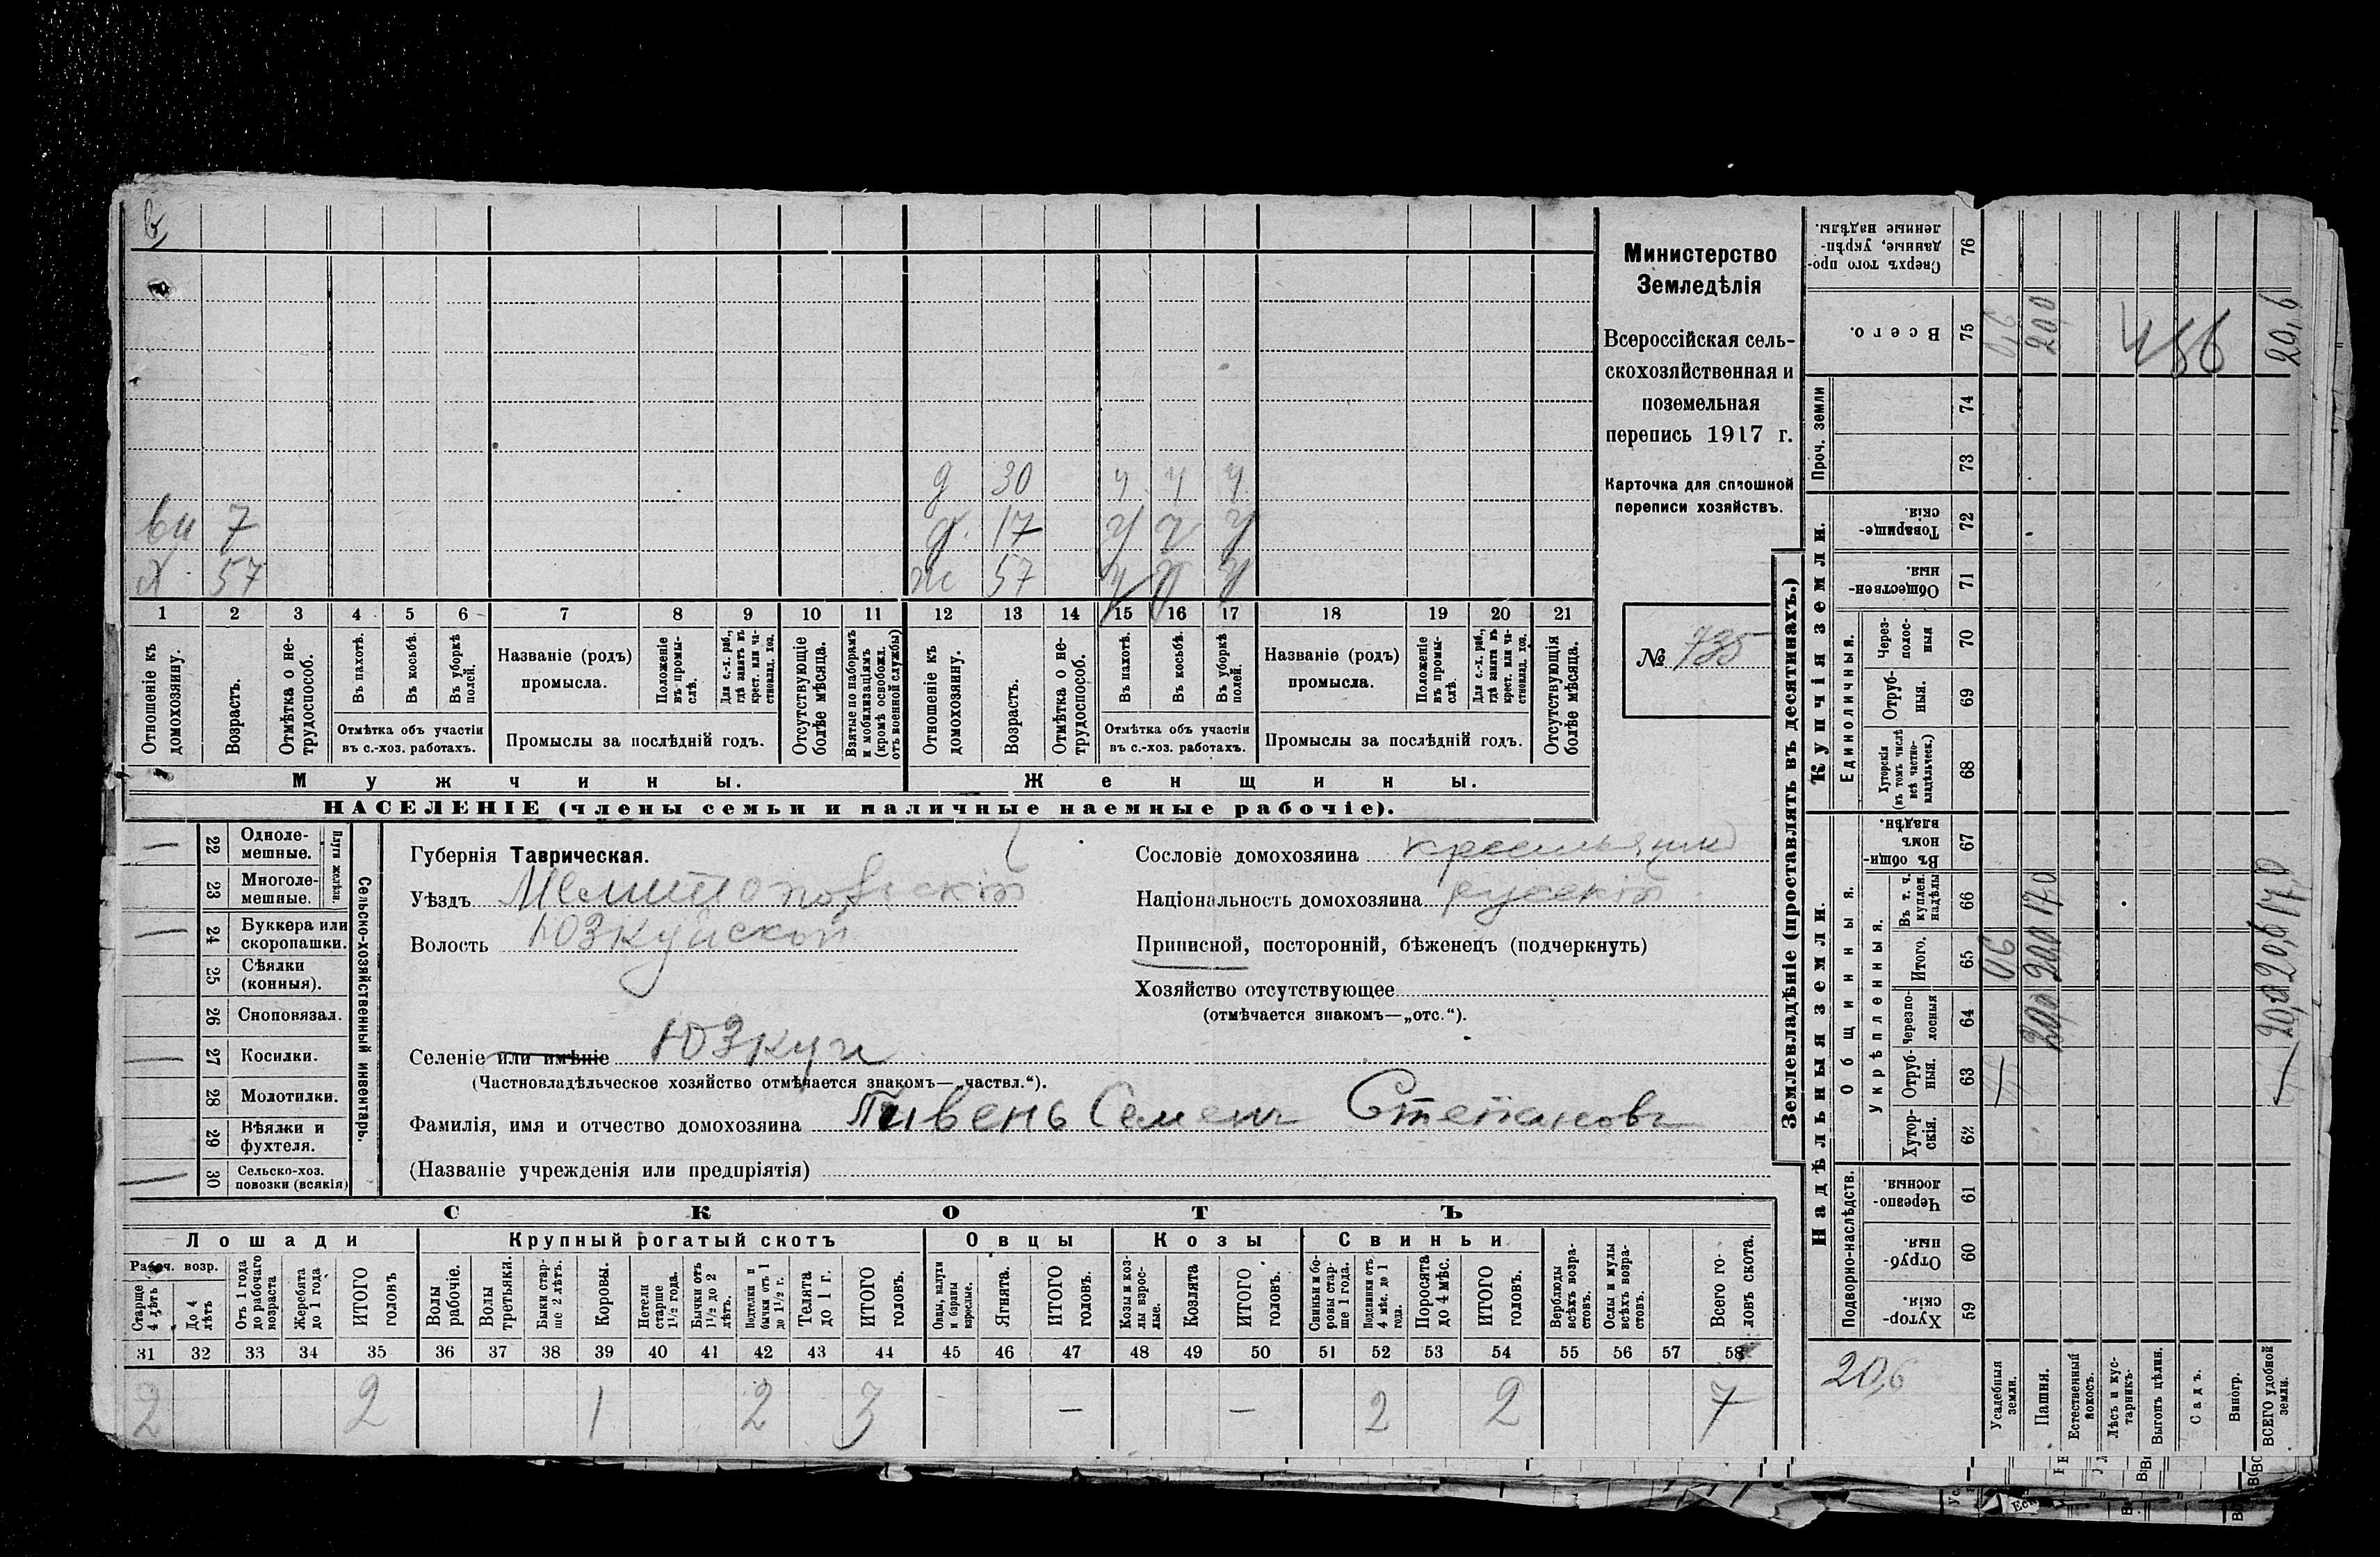 Министерство
Земледѣлія
Всероссійская сель-
скохозяйственная и
поземельная
перепись 1917 г.
Карточка для сплошной
переписи хозяйствъ.
№ 735
д 30 ч ч ч
вн 7 д. 17 ч ч ч
х. 57 ж 57 ч ч ч
1 2 3 4 5 6 7 8 9 10 11 12 13 14 15 16 17 18 19 20 21
Отношеніе къ домохозяину.
Возрастъ.
Отмѣтка о не-трудоспособ.
Въ пахотѣ.
Въ косьбѣ.
Въ уборкѣ полей.
Отмѣтка объ участіи
въ с.-хоз. работахъ.
Названіе (родъ)
промысла.
Положеніе въ промы-слѣ.
Для с.-х. раб., гдѣ занятъ въ крест. или ча-стновлад. хоз.
Промыслы за послѣдній годъ.
Отсутствующіе болѣе мѣсяца.
Взятые по наборамъ и мобилизаціямъ (кромѣ освобожд. отъ военной службы)
Отношеніе къ домохозяину.
Возрастъ.
Отмѣтка о не-трудоспособ.
Въ пахотѣ.
Въ косьбѣ.
Въ уборкѣ полей.
Отмѣтка объ участіи
въ с.-хоз. работахъ.
Названіе (родъ)
промысла.
Положеніе въ промы-слѣ.
Для с.-х. раб., гдѣ занята въ крест. или ча-стновлад. хоз.
Промыслы за послѣдній годъ.
Отсутствующія болѣе мѣсяца.
Мужчины. Женщины.
НАСЕЛЕНІЕ (члены семьи и наличные наемные рабочіе).
22 Одноле-мешные.
23 Многоле-мешные.
Плуги желѣзн.
24 Буккера или скоропашки.
25 Сѣялки (конныя).
26 Сноповязал.
27 Косилки.
28 Молотилки.
29 Вѣялки и фухтеля.
30 Сельско-хоз. повозки (всякія)
Сельско-хозяйственный инвентарь.
Губернія Таврическая.
Уѣздъ Мелитопольскій
Волость Юзкуйской
Селеніе или имѣніе Юзкуи
(Частновладѣльческое хозяйство отмѣчается знакомъ—„частвл.“).
Фамилія, имя и отчество домохозяина Пивень Семенъ Степановъ
(Названіе учрежденія или предпріятія)
Сословіе домохозяина крестьянин
Національность домохозяина русскій
Приписной, посторонній, бѣженецъ (подчеркнуть)
Хозяйство отсутствующее
(отмѣчается знакомъ—„отс.“).
СКОТЪ
Лошади Крупный рогатый скотъ Овцы Козы Свиньи
Рабоч. возр.
Старше 4 лѣтъ
До 4 лѣтъ
Отъ 1 года до рабочаго возраста
Жеребята до 1 года
ИТОГО головъ
Волы рабочіе.
Волы третьяки.
Быки стар-ше 2 лѣтъ.
Коровы.
Нетели старше 1½ года.
Бычки отъ 1½ до 2 лѣтъ.
Подтелки и бычки отъ 1 до 1½ г.
Телята до 1 г.
ИТОГО головъ.
Овцы, валухи и бараны взрослые.
Ягнята.
ИТОГО головъ.
Козы и коз-лы взрос-лые.
Козлята
ИТОГО головъ.
Свиньи и бо-ровы стар-ше 1 года.
Подсвинки отъ 4 мѣс. до 1 года.
Поросята до 4 мѣс.
ИТОГО головъ.
Верблюды всѣхъ возра-стовъ.
Ослы и мулы всѣхъ возра-стовъ.
Всего го-ловъ скота.
31 32 33 34 35 36 37 38 39 40 41 42 43 44 45 46 47 48 49 50 51 52 53 54 55 56 57 58
2 2 1 2 3 — — 2 2 7
Землевладѣніе (проставлять въ десятинахъ.)
Надѣльныя земли. Купчія земли. Проч. земли
Подворно-наслѣдств.
Общинныя.
Укрѣпленныя.
Единоличныя.
Хутор-скія. 59
Отруб-ныя. 60
Черезпо-лосныя. 61
Хутор-скія. 62
Отруб-ныя. 63
черезпо-лосныя 64
Итого. 65
Въ т. ч. куплен. надѣлы 66
Въ общин-номъ владѣн. 67
Хуторскія (въ томъ числѣ всѣ частно-владѣльческ.) 68
Отруб-ныя. 69
Через-полос-ныя 70
Обществен-ныя. 71
Товарище-скія. 72
73
74
Всего. 75
Сверхъ того про-данные, укрѣп-ленные надѣлы. 76
20,6
Усадебныя земли. — 06 0,6
Пашня. 20,0 20,0 17,0 20,0
Естественный покосъ.
Лѣсъ и кус-тарникъ.
Выгонъ цѣлин.
Садъ.
Виногр.
ВСЕГО удобной земли. — 20,0 20,6 17,0 20,6
456